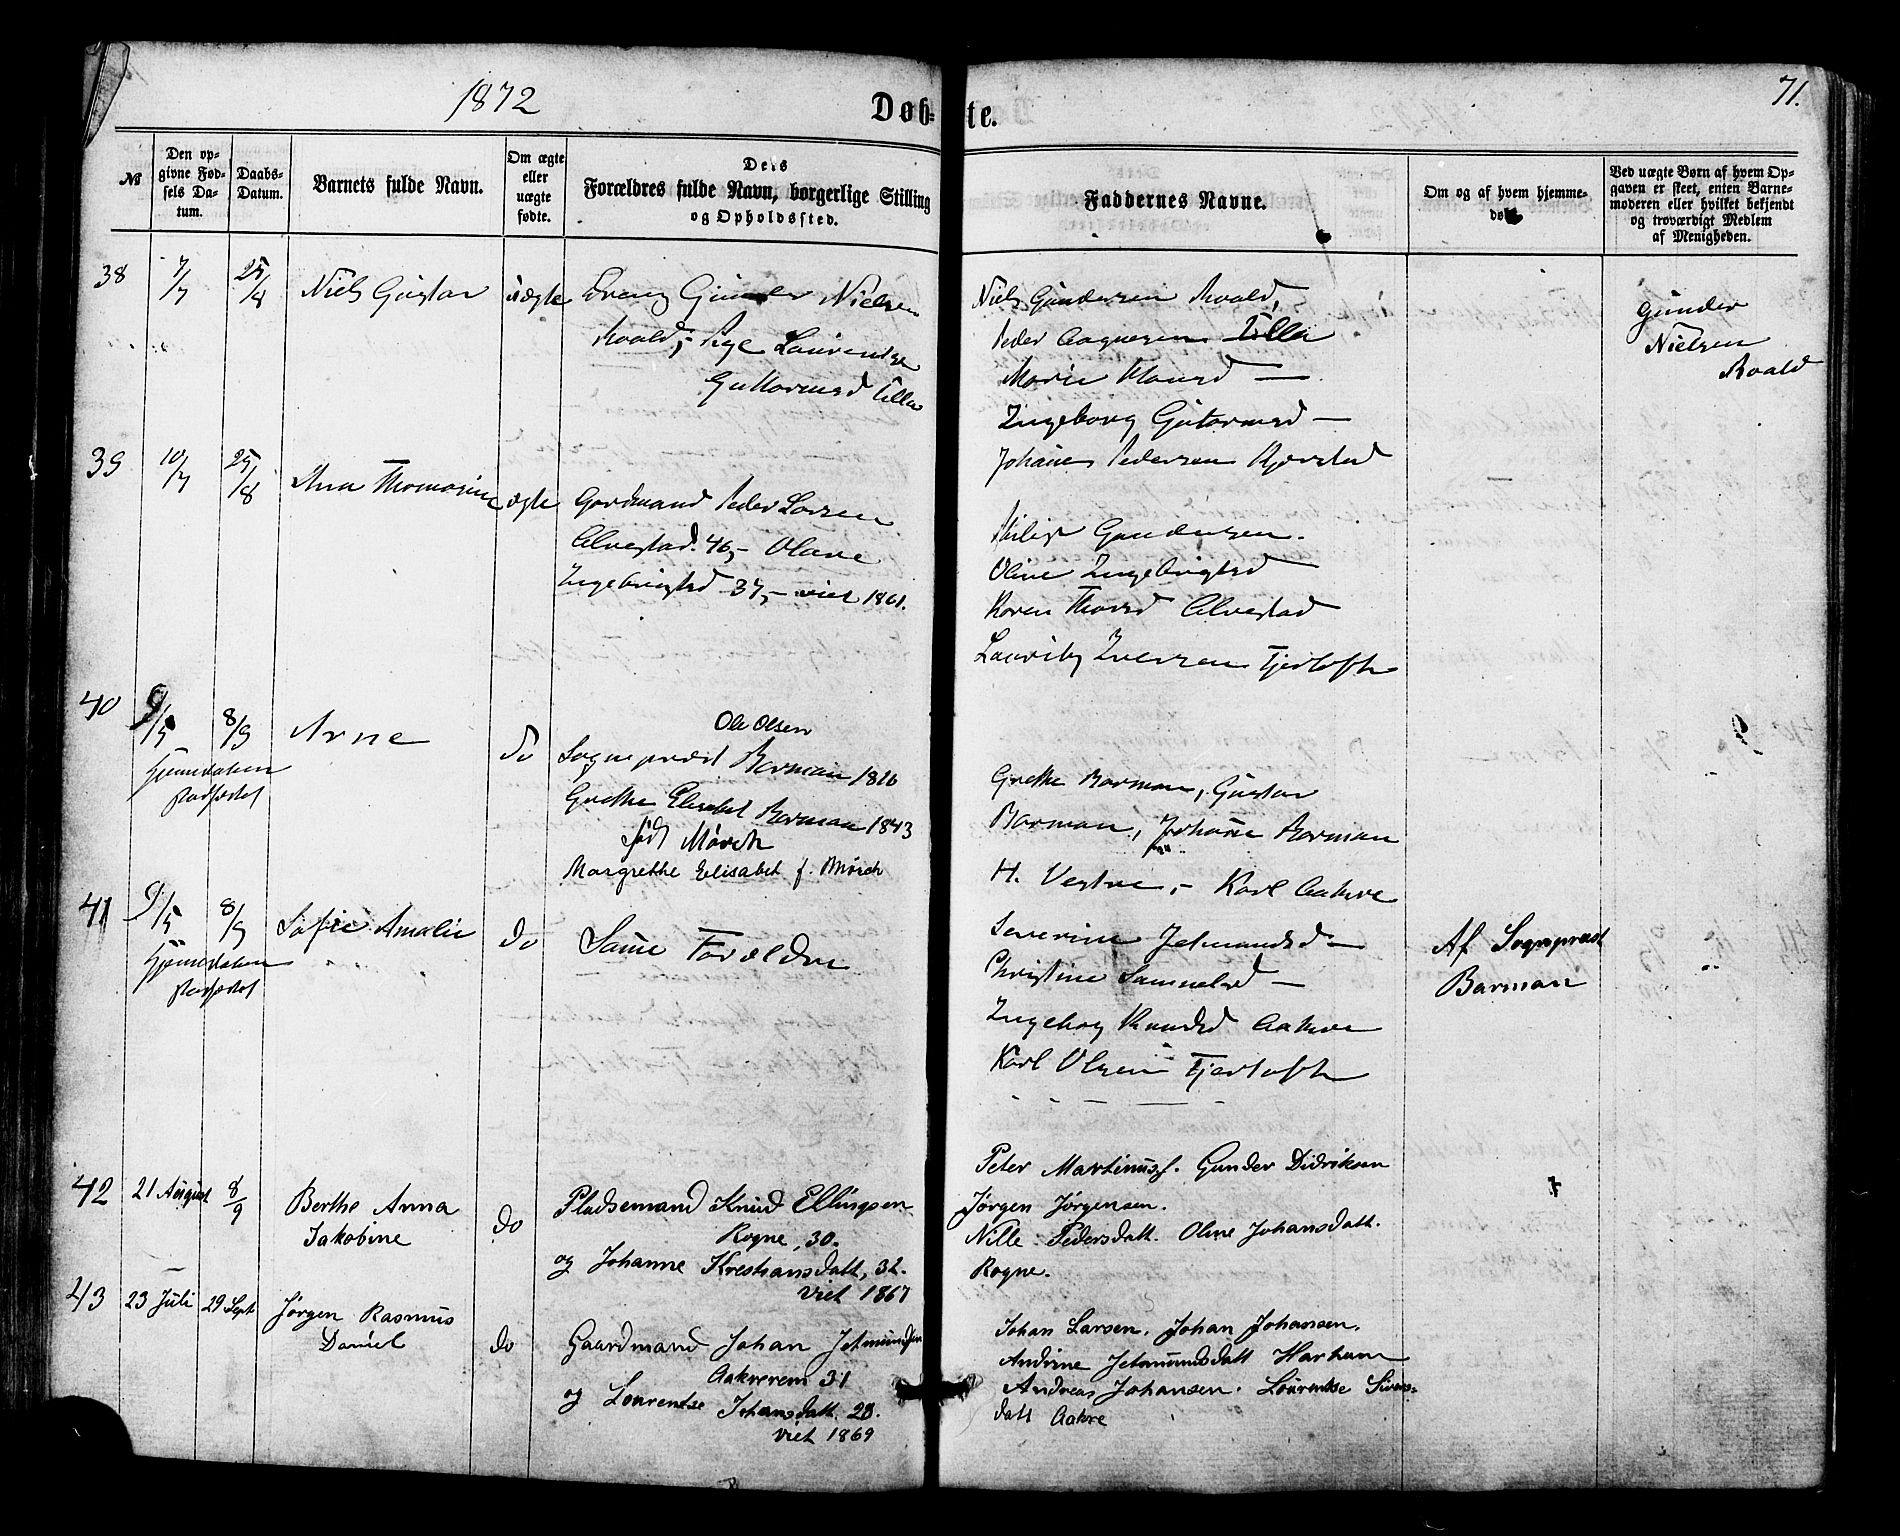 1872
Døb-
te.
71.
№
Den op-
givne Fød-
sels Da-
tum.
Daabs-
Datum.
Barnets fulde Navn.
Om ægte
eller
uægte
fødte.
Dets
Forældres fulde Navn, borgerlige Stilling
og Opholdssted.
Faddernes Navne.
Om og af hvem hjemme-
døbt.
Ved uægte Børn af hvem Op-
gaven er skeet, enten Barne-
moderen eller hvilket bekjendt
og troværdigt Medlem
af Menigheden.
38
7/7
25/8
Niels Gustav
uægte
Gunder Nielsen
Roald,- Pige Laurentse
Guttormsd Ulla
Niels Gundersen Roald,
Peder Aagesen Ulla
Marie Hansd —
Ingeborg Gutormsd —
Johan Pedersen Kjerstad
Gunder
Nielsen
Roald
39
10/7
25/8
Ana Thomasine
ægte
Gardmand Peder Larsen
Alvestad. 46,- Olave
Ingebrigtsd 37,- viet 1861.
Philip Gundersen.
Oline Ingebrigtsd
Karen Thorsd Alvestad
Lauritz Iversen Fjertoft
40
9/5
8/9
Arne
do
Hjemmedøben
stadfæstet
Ole Olsen
Sogneprest Barman 1826
Grethe Elisabet Barman 1843
født Mørch
Margrethe Elisabet f. Mørch
Grethe Barman, Gustav
Barman, Johanne Barman
H. Vestre,- Karl Aakre
41
9/5
8/9
Sofie Amalie
do
Hjemmedøben
stadfæstet
Samme Forældre
Severine Jetmundsd —
Christine Samuelsd —
Ingeborg Knudsd Aakre
Karl Olsen Fjertoft
Af Sogneprest
Barman
42
21 August
8/9
Berthe Anna
Jakobine
do
Pladsemand Knud Ellingsen
Rogne, 30.
og Johanne Krestiansdatt, 32.
viet 1867
Peter Martinuss. Gunder Didriksen
Jørgen Jørgensen.
Nille Pedersdatt. Oline Johansdatt.
Rogne.
43
23 Juli
29 Sept
Jørgen Rasmus
Daniel
do
Gaardmand Johan Jetmundsen
Aakrerem 31
og Lourentse Johansdatt. 28.
viet 1869
Johan Larsen. Johan Johansen.
Andrine Jetmundsdatt Harham
Andreas Johansen. Lourentse Sivers-
datt Aakre